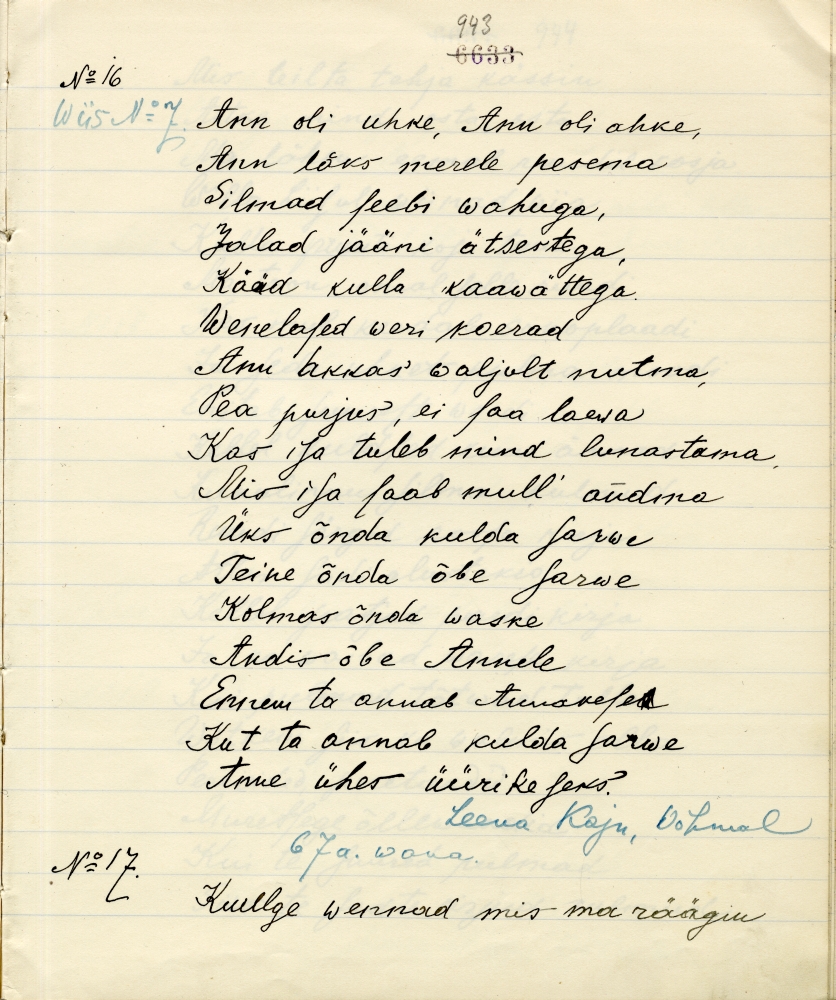 943
6633
No 16
Wiis No 7. Ann oli uhke, Ann oli ahke,
Ann läks merele pesema
Silmad seebi wahuga,
Jalad jääni ätsestega,
Kääd kulla kaawättega.
Wenelased weri koerad
Ann akkas waljult nutma,
Pea purjus, ei saa laewa
Kas isa tuleb mind lunastama,
Mis isa saab mull' andma
Üks õnda kulda sarwe
Teine õnda õbe sarwe
Kolmas õnda waske
Andis õbe Annele
Ennem ta annab
Kut ta annab kulda sarwe
Anne ühes üürikeseks.
Leena Kaju,
67 a. wana.
No 17.
Kuullge wennad mis ma räägin